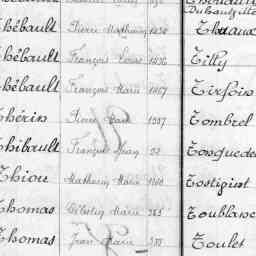 Thébault Pierre Mathurin 1430 Thuaux
Thébault François Louis 1436 Tilly
Thébault François Marie 1467 Tirfoin
Thérin Pierre 1337 Tombrel
Thibault François Jean 22 Tonquedec
Thiou Mathurin Marie 1160 Tostivint
Thomas Célestin Marie 325 Toublanc
Thomas Jean Marie 533 Toulet